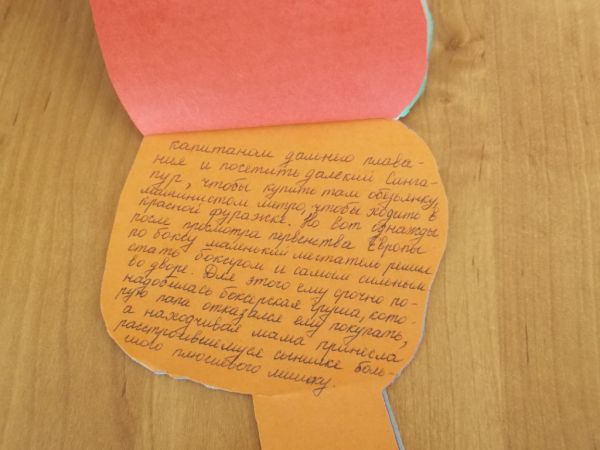 капитаном дальнего плава-
ния и посетить далекий Синга-
пур, чтобы купить там обезьянку,
машинистом метро, чтобы ходить в
красной фуражке. Но вот однажды
после просмотра первенства Европы
по боксу маленький мечтатель решил
стать боксером и самым сильным
во дворе. Для этого ему срочно по-
надобилась боксерская груша, кото-
рую папа отказался ему покупать,
а находчивая мама принесла
расстроившемуся сынишке боль-
шого плюшевого мишку.